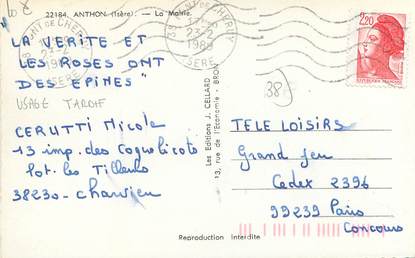 22184. ANTHON (Isère). — La Mairie.
38 PONT DE CHERUY
17-30
23-2
1989
ISERE
2,20
LA VERITE ET
LES ROSES ONT
DES EPINES"
USAGE TARDIF
CERUTTI Nicole
13 imp. des Coquelicots
lot. les Tilleuls
38230 - Charvieu
Les Editions J. CELLARD
13, rue de l'Economie - BRON
38
TELE LOISIRS
Grand Jeu
Cedex 2396
99239 Paris
Concours
Reproduction Interdite